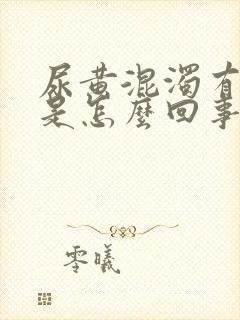 尿黄混濁有
是怎麼回事
零曦